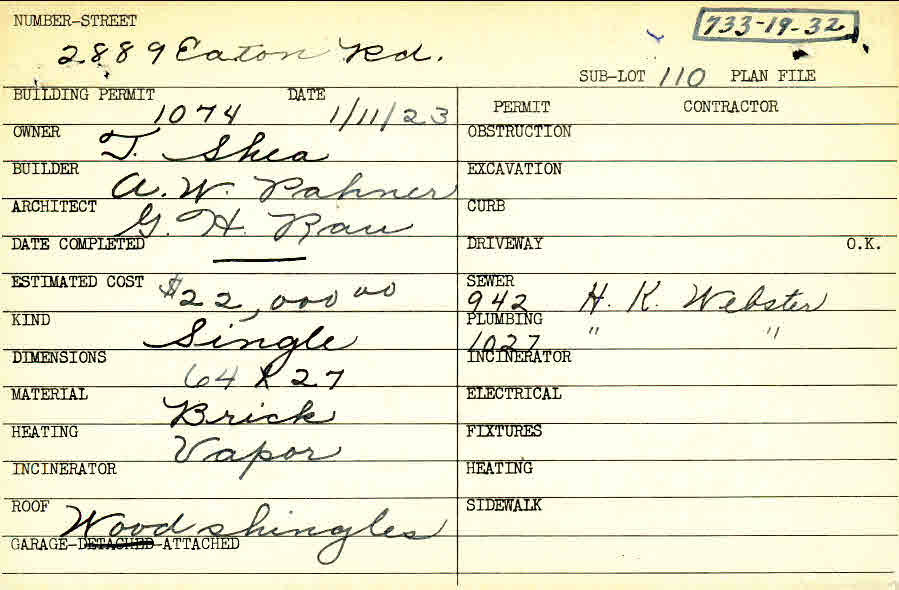 NUMBER-STREET
733-19-32
2889 Eaton Rd.
SUB-LOT 110 PLAN FILE
BUILDING PERMIT DATE
1074 1/11/23
PERMIT CONTRACTOR
OWNER T. Shea
OBSTRUCTION
BUILDER A. W. Pahner
EXCAVATION
ARCHITECT G. H. Rau
CURB
DATE COMPLETED —
DRIVEWAY O.K.
ESTIMATED COST $22,000 00
SEWER
942 H. K. Webster
KIND Single
PLUMBING
1027 " "
DIMENSIONS 64 X 27
INCINERATOR
MATERIAL Brick
ELECTRICAL
HEATING Vapor
FIXTURES
INCINERATOR
HEATING
ROOF Wood shingles
SIDEWALK
GARAGE-DETACHED-ATTACHED